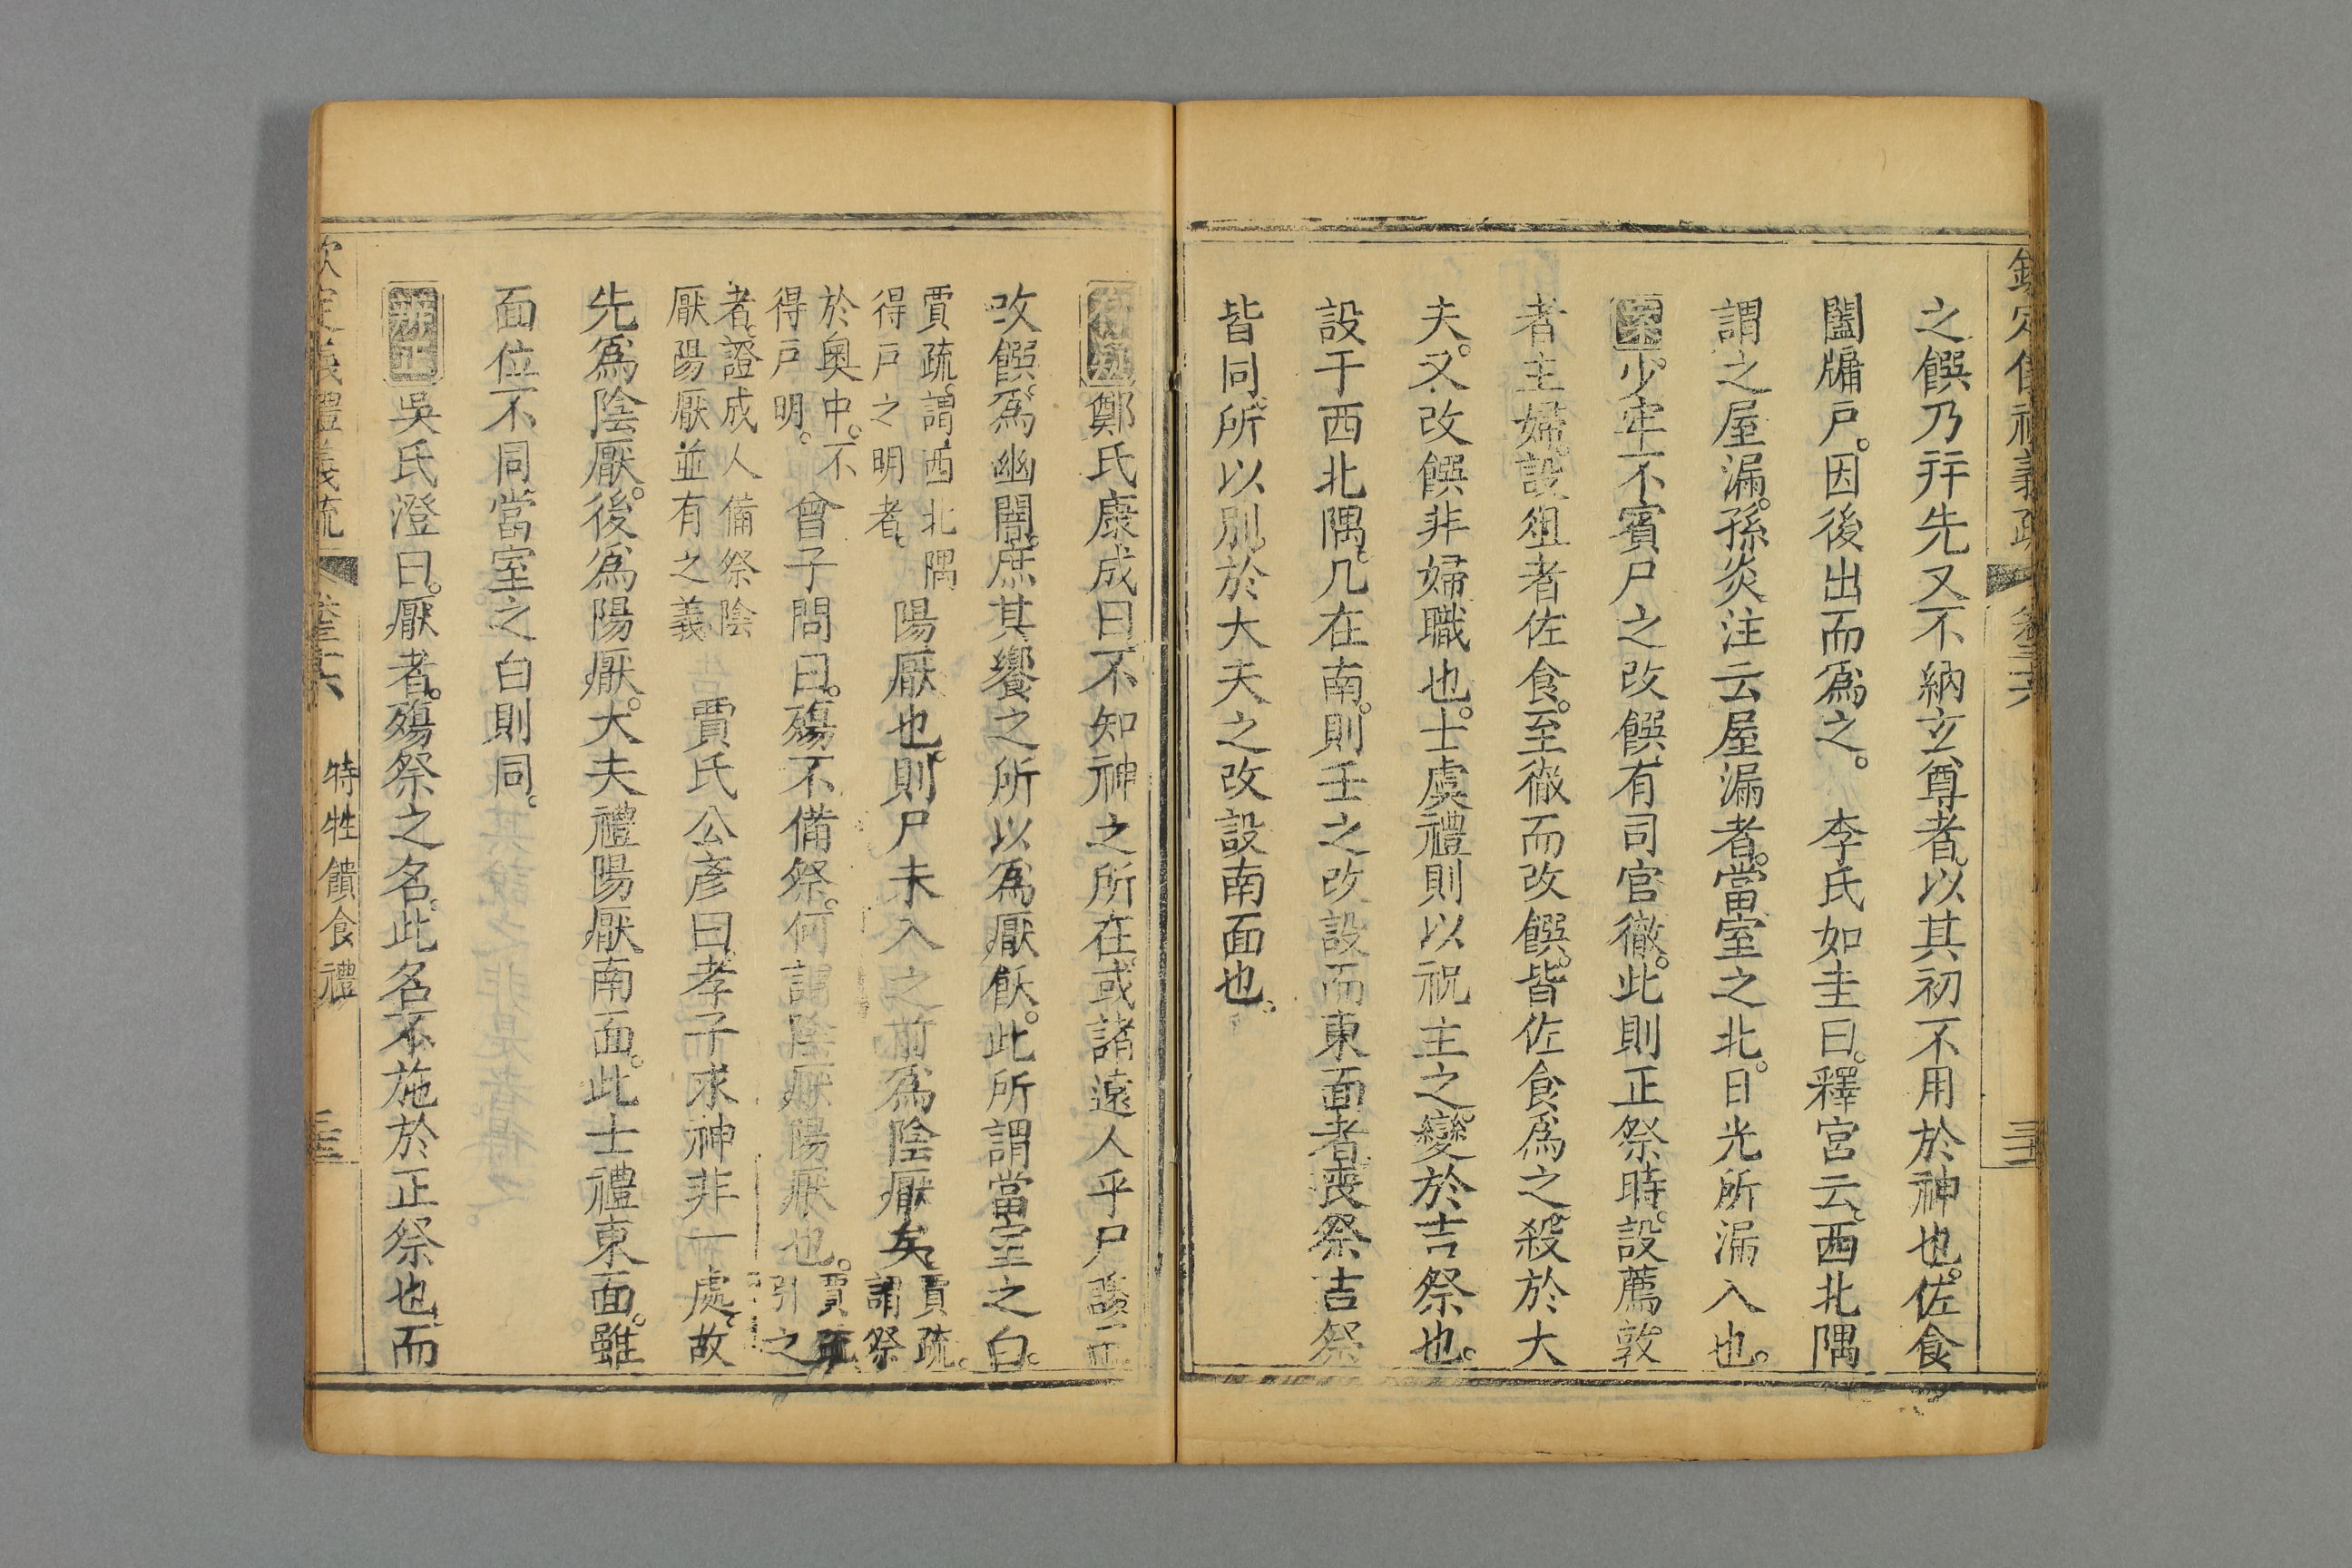 之饌乃行先又不納玄尊者以其初不用於神也佐食
闔牖戶。因後出而爲之。李氏如圭曰。釋宮云西北隅
謂之屋漏。孫炎注云屋漏者。當室之北。日光所漏入也。
案少牢不賓尸之改饌有司官徹。此則正祭時。設薦敦
者主婦。設俎者佐食。至徹而改饌。皆佐食爲之。殺於大
夫。又改饌非婦職也。士虞禮則以祝主之。變於吉祭也。
設于西北隅。几在南。則士之改設而東面者喪祭吉祭
皆同。所以別於大夫之改設南面也。
存疑鄭氏康成曰不知神之所在或諸遠人乎尸謖而
改饌。爲幽闇庶其饗之所以爲厭飫。此所謂當室之白。
賈疏。謂西北隅
得戶之明者。
陽厭也。則尸未入之前爲陰厭矣
賈疏。謂祭
於奧中。不
得戶明。
曾子問曰。殤不備祭。何謂陰厭陽厭也。
賈疏引之
者。證成人備祭陰
厭陽厭並有之義
賈氏公彥曰孝子求神非一處故
先爲陰厭。後爲陽厭。大夫禮陽厭南面。此士禮東面。雖
面位不同當室之白則同。
辨正吳氏澄曰。厭者。殤祭之名。此名不施於正祭也而
欽定儀禮義疏 卷三十六 特牲饋食禮